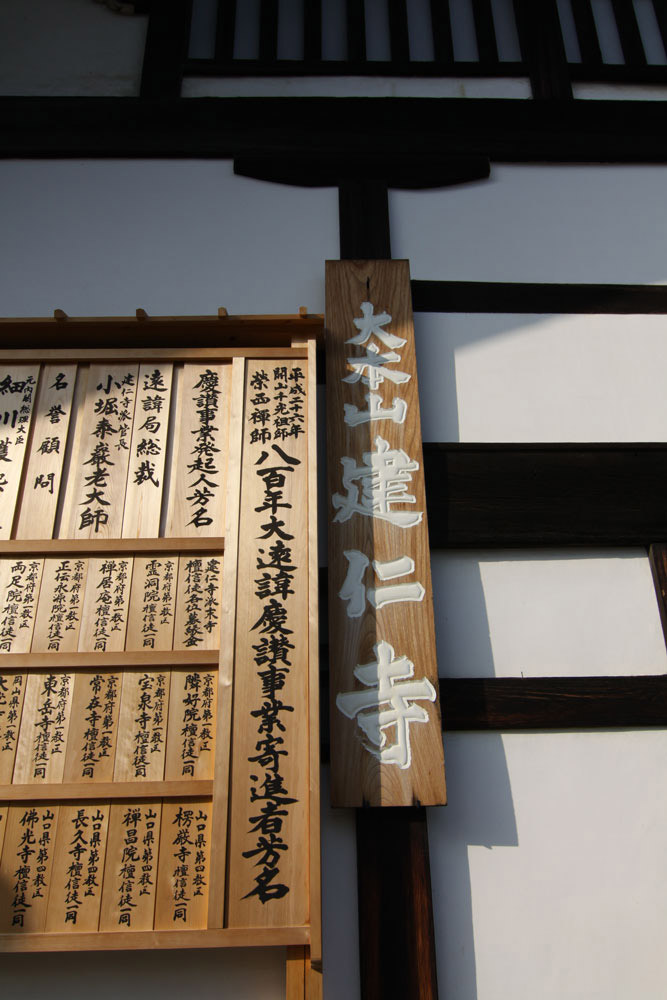 大本山建仁寺
平成二十六年
開山千光祖師
栄西禅師
八百年大遠諱慶讃事業寄進者芳名
慶讃事業発起人芳名
遠諱局総裁
建仁寺派管長
小堀泰巖老大師
名誉顧問
元内閣総理大臣
細川護
建仁寺派末寺
檀信徒各位募縁金
京都府第一教区
霊洞院檀信徒一同
京都府第一教区
禅居庵檀信徒一同
京都府第一教区
正伝永源院檀信徒一同
京都府第一教区
両足院檀信徒一同
京都府第一教区
隣好院檀信徒一同
京都府第一教区
宝泉寺檀信徒一同
京都府第一教区
常在寺檀信徒一同
京都府第一教区
東岳寺檀信徒一同
岡山県第
山口県第四教区
楞厳寺檀信徒一同
山口県第四教区
禅昌院檀信徒一同
山口県第四教区
長久寺檀信徒一同
山口県第四教区
佛光寺檀信徒一同